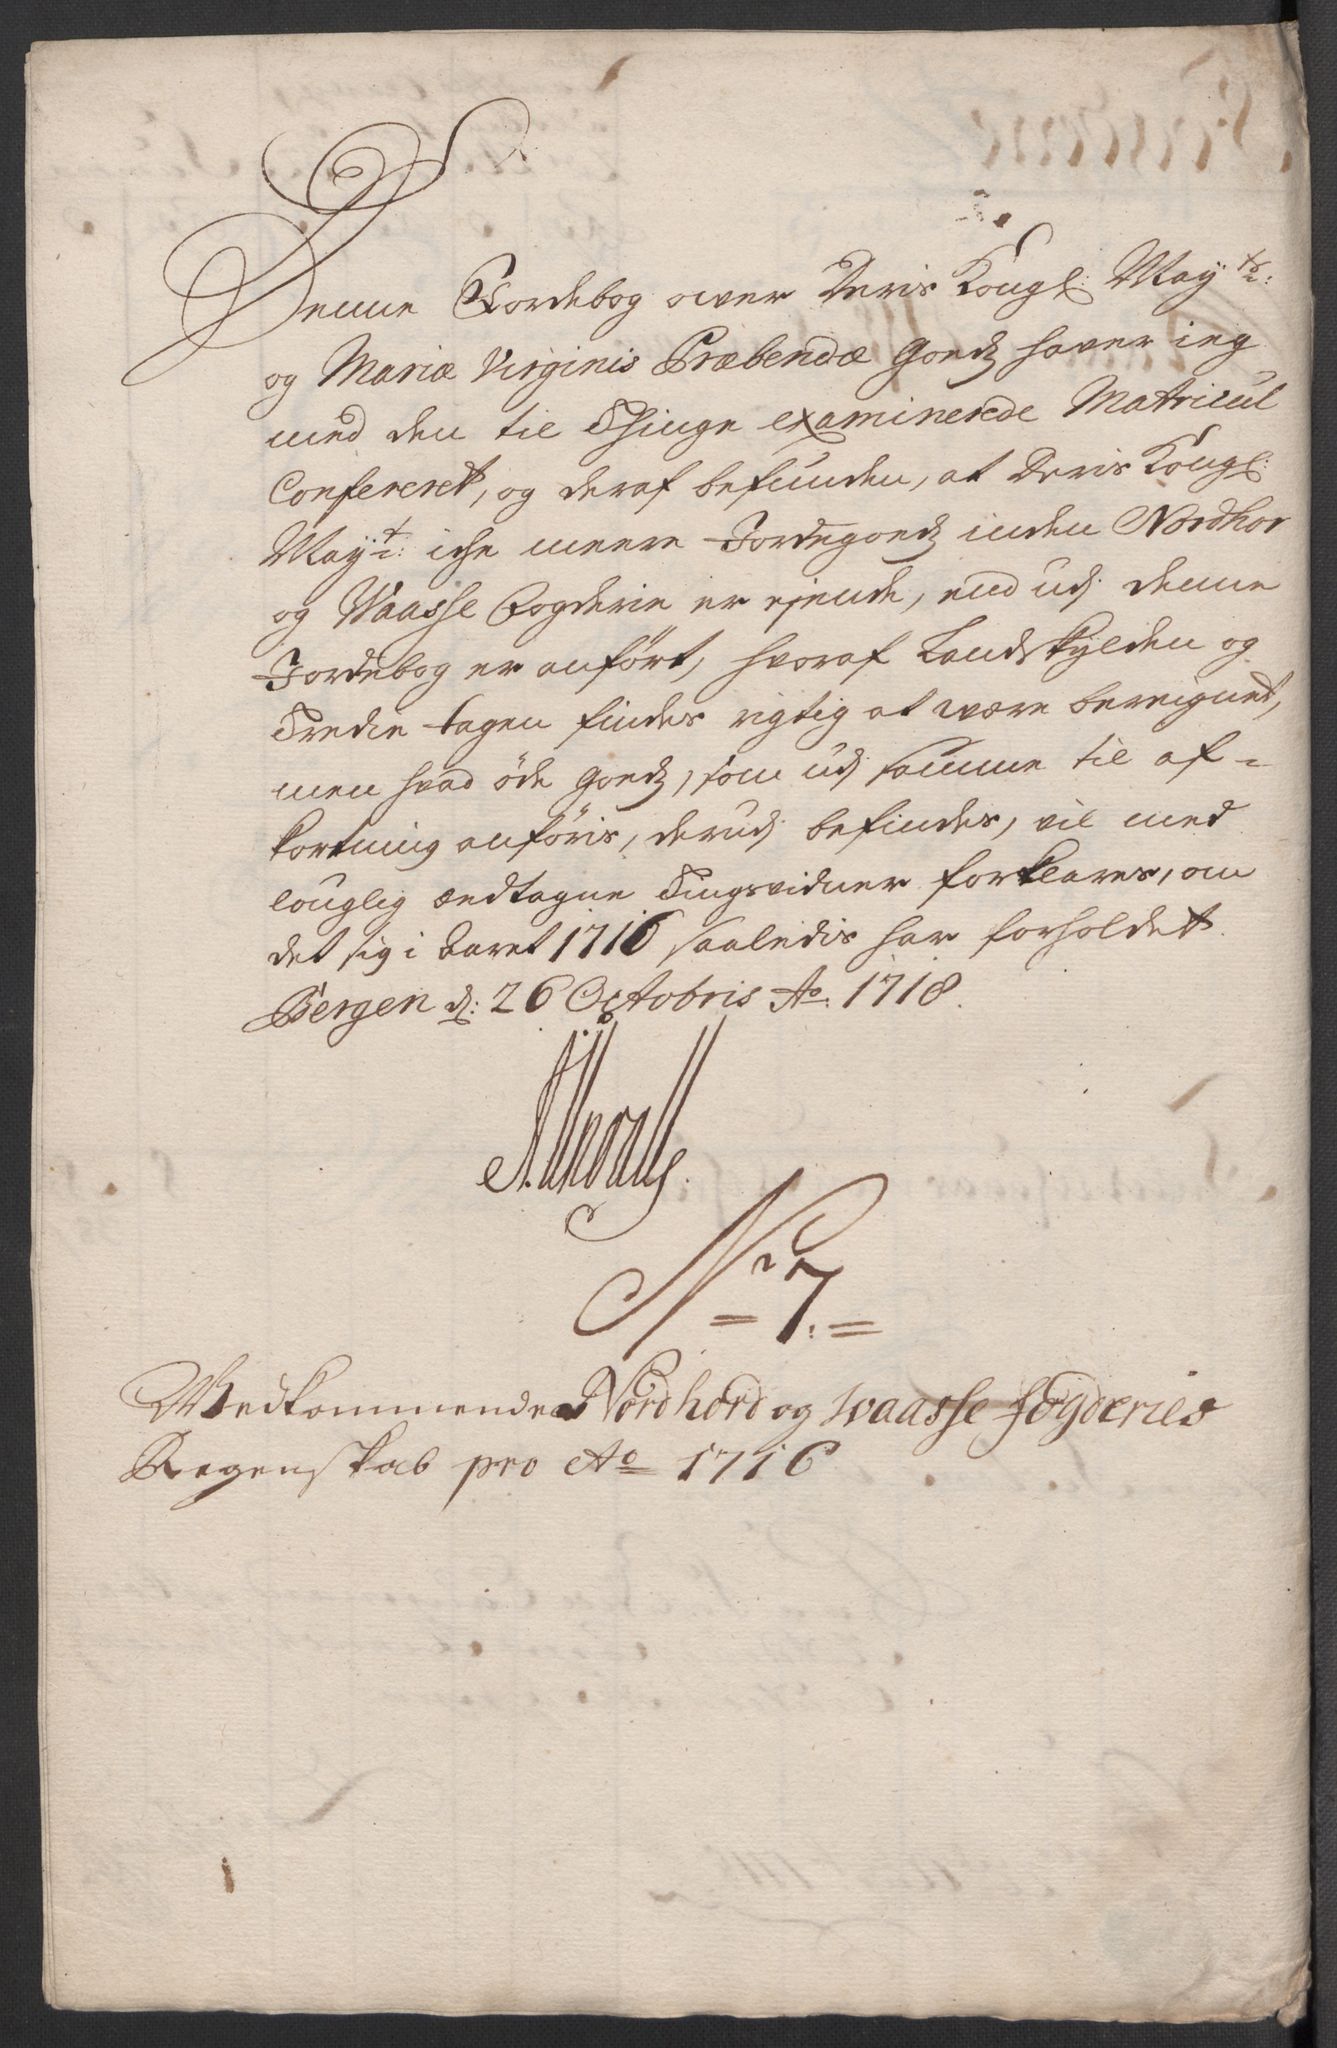 Denne Jordebog over Deris Kongl: May ts:
og Mariæ Virginis Præbendæ Goedz haver ieg
med den til Thinge examinerede Matricul
Confereret, og deraf befunden, at Deris Kongl:
May t: iche meere Jordegoedz inden Nordhor
og Waasse Fogderie er ejende, end udj denne
Jordebog er anført, hvoraf Landskylden og
Tredie tagen findes rigtig at være bereignet,
men hvad øde Goedz, som udj samme til af=
kortning anføris, derudj befindes, vil med
louglig ændtagne Tingsvidner forklares, om
det sig i Aaret 1716 saaledis har forholdet.
Bergen d: 26 Octobris Ao: 1718.
No = 7 : =
Vedkommende Nordhord og Waasse fogderies
Regenskab pro Ao 1716